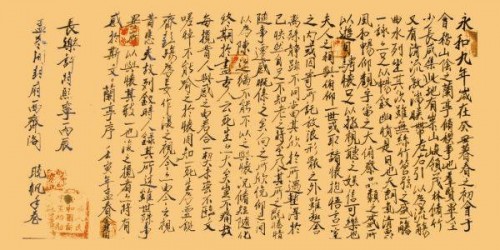 永和九年歲在癸丑暮春之初會于
會稽山陰之蘭亭脩禊事也群賢畢至
少長咸集此地有崇山峻領茂林脩竹
又有清流激湍映帶左右引以為流觴
曲水列坐其次雖無絲竹管弦之盛一觴
一詠亦足以暢敘幽情是日也天朗氣清惠
風和暢仰觀宇宙之大俯察品類之盛所
以遊目騁懷足以極視聽之娛信可樂也
夫人之相與俯仰一世或取諸懷抱悟言一室
之內或因寄所託放浪形骸之外雖趣舍
萬殊靜躁不同當其欣於所遇暫得於
己快然自足不知老之將至及其所之既惓情
隨事遷感慨係之矣向之所欣俛仰之間
以為陳迹猶不能不以之興懷況脩短隨化
終期於盡古人云死生亦大矣豈不痛哉
每攬昔人興感之由若合一契未嘗不臨文
嗟悼不能喻之於懷固知一死生為虛誕
齊彭殤為妄作後之視今亦由今之視
昔悲夫故列敘時人錄其所述雖世殊事
異所以興懷其致一也後之攬者亦將有
感於斯文 蘭亭序 壬寅年孟春
長樂許將熙寧丙辰
孟冬開封府西齋閱
殷帆手卷